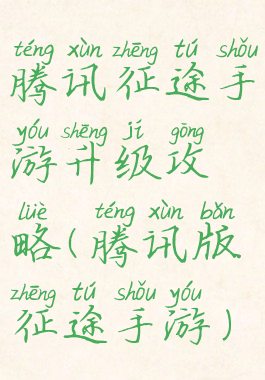 téng xùn zhēng tú shǒu
腾讯征途手
yóu shēng jí gōng
游升级攻
lüè téng xùn bǎn
略(腾讯版
zhēng tú shǒu yóu
征途手游)